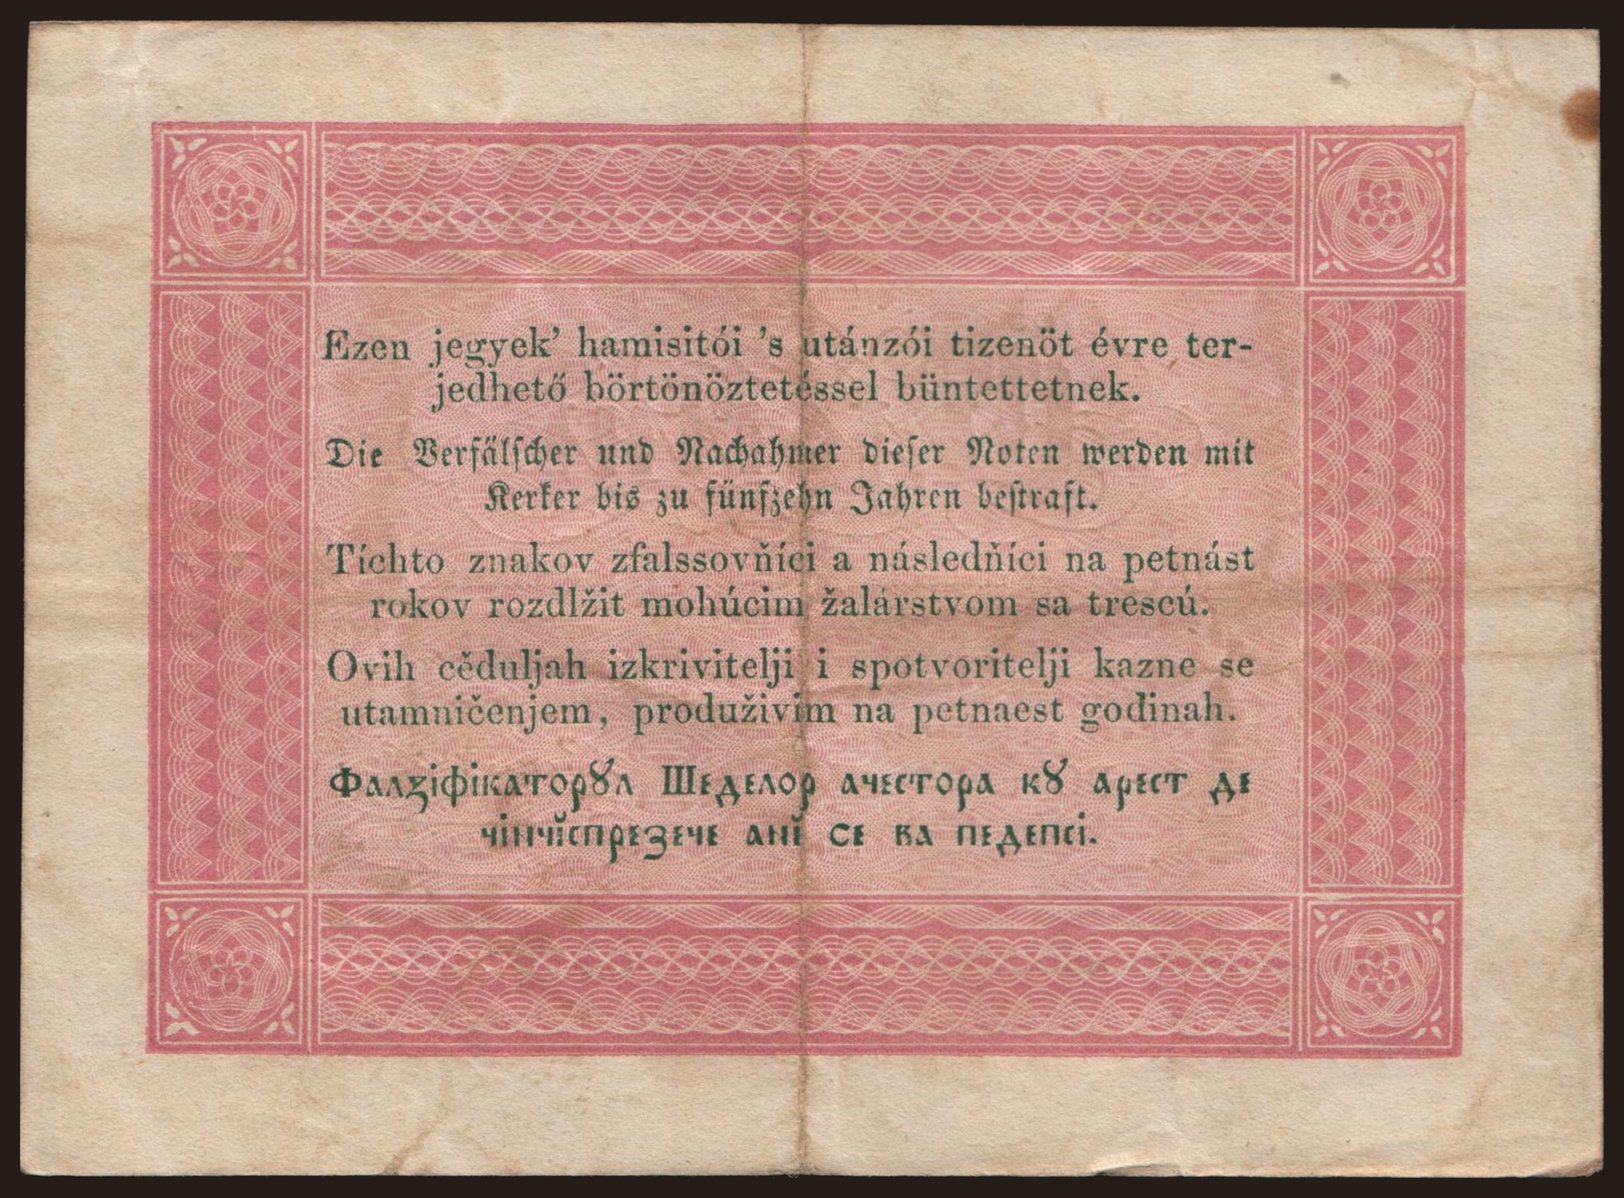 Ezen jegyek’ hamisitói ’s utánzói tizenöt évre ter-
jedhető börtönöztetéssel büntettetnek.
Die Verfälscher und Nachahmer dieser Noten werden mit
Kerker bis zu fünfzehn Jahren bestraft.
Tíchto znakov zfalssovňíci a následňíci na petnást
rokov rozdlžit mohúcim žalárstvom sa trescú.
Ovih cěduljah izkrivitelji i spotvoritelji kazne se
utamničenjem, produživim na petnaest godinah.
Фалзіфікаторꙋл Шеделор ачестора кꙋ арест де
чінчĭспрезече анĭ се ва педепсі.